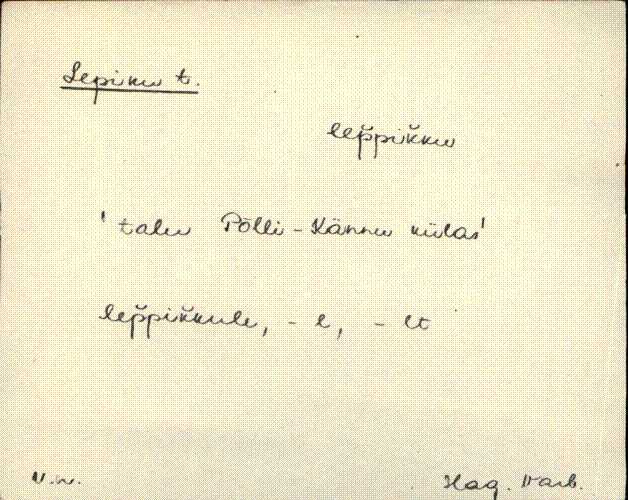 Lepiku t.
lep̆pik̆ku
'talu Põlli-Kännu külas'
lep̆pik̆kule, -l, -lt
V.N. Hag. Varb.